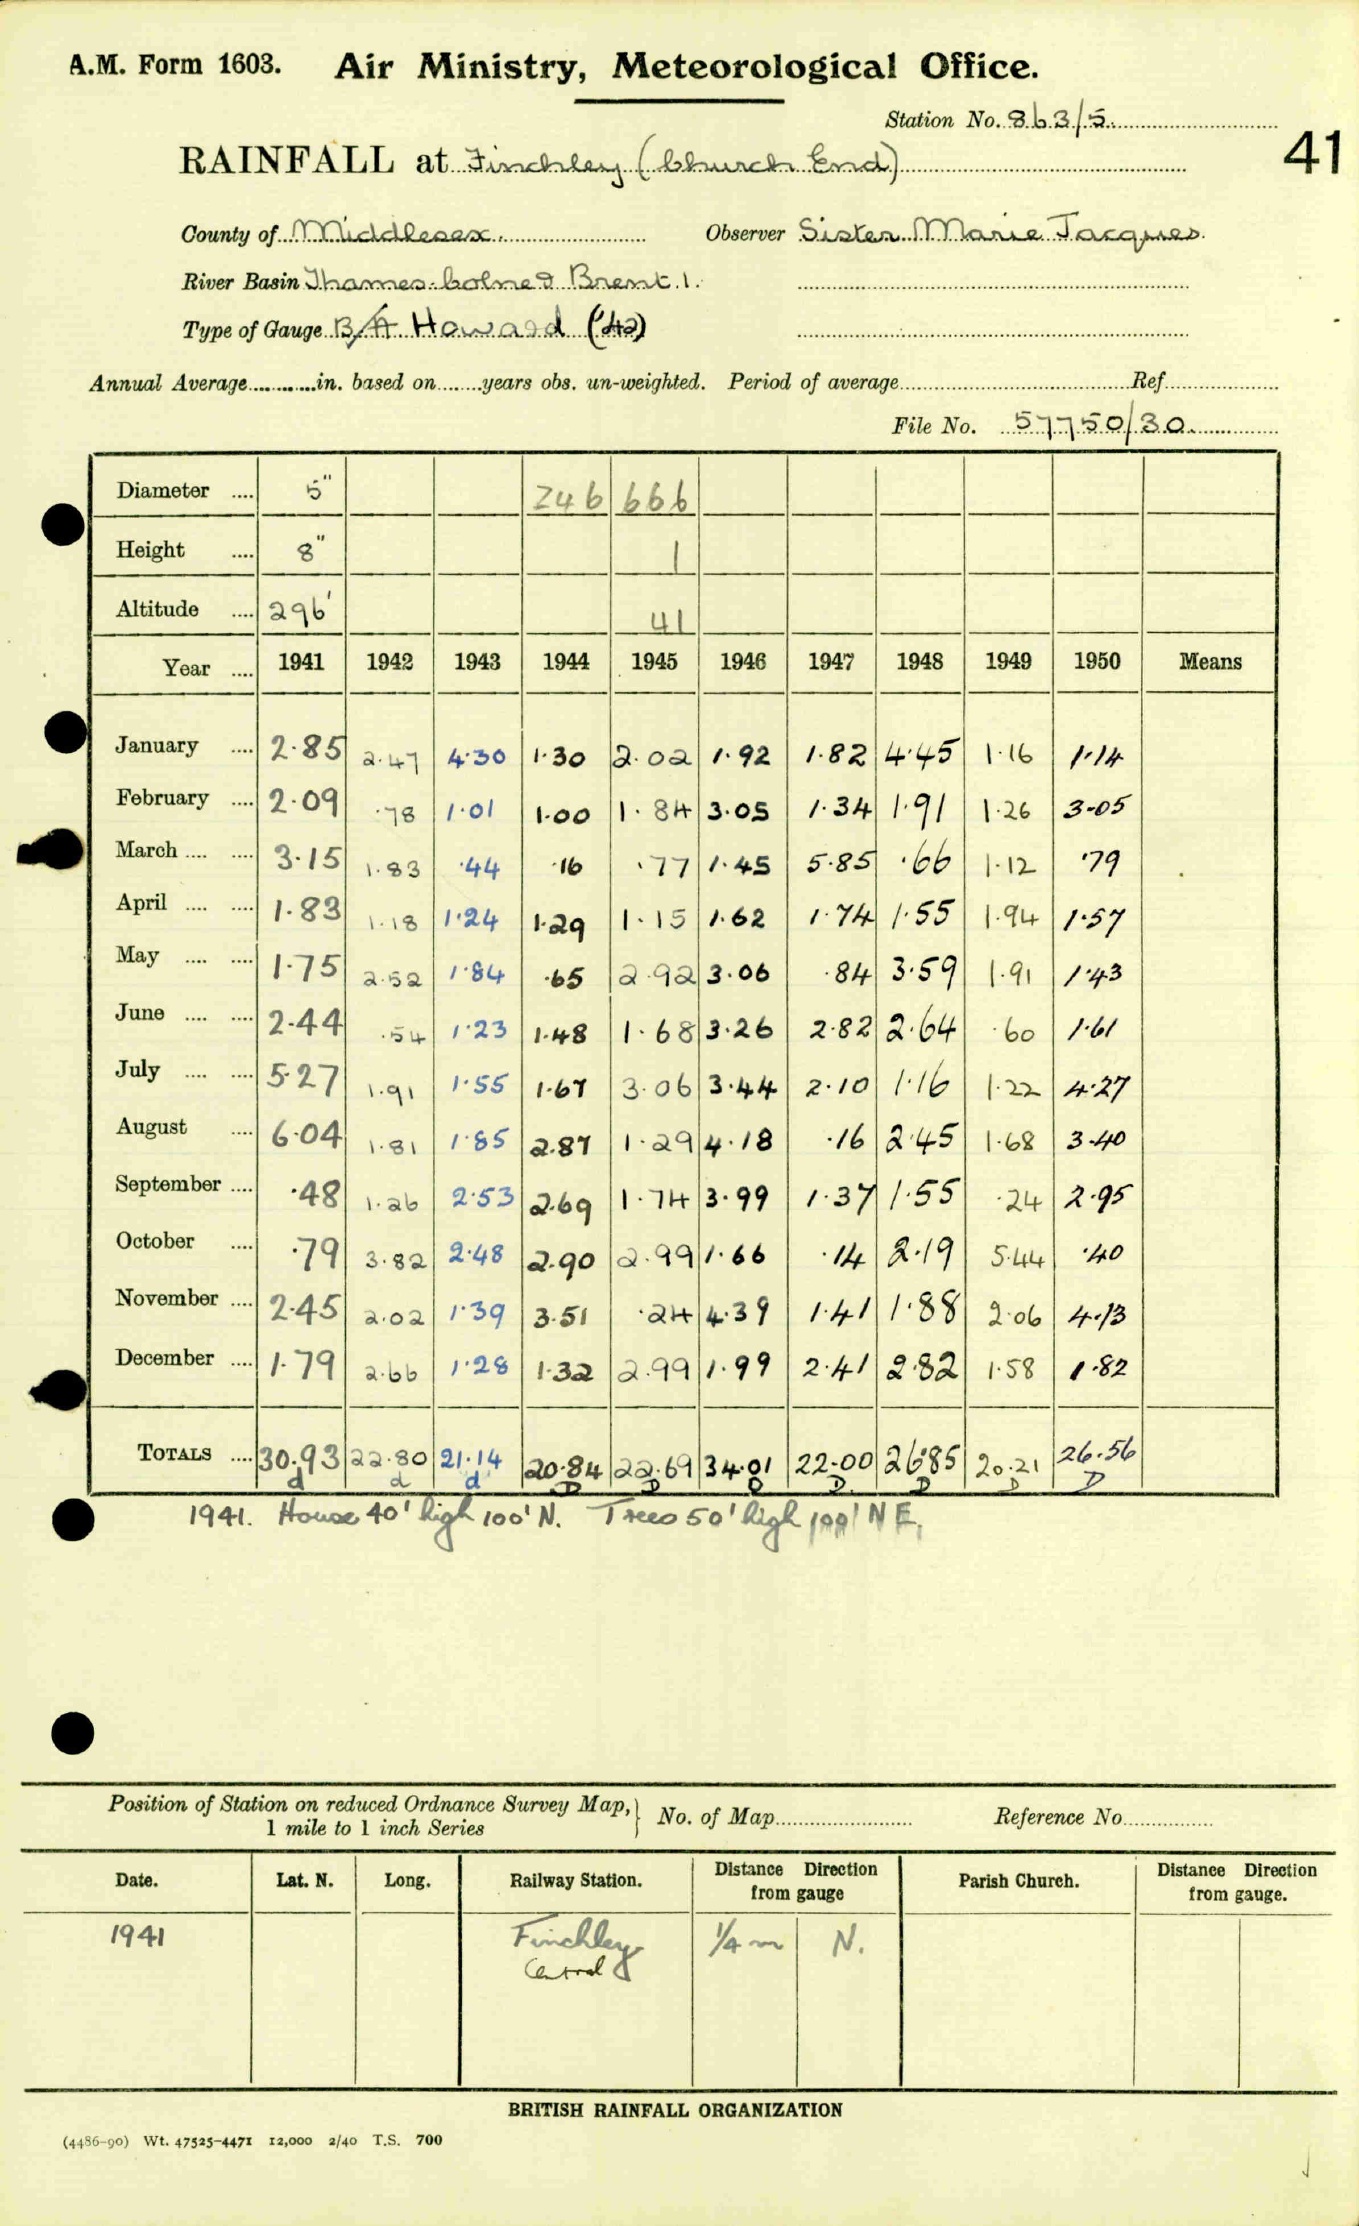 A.M. Form 1603. Air Ministry, Meteorological Office.
Station No. 863/5.
41
RAINFALL at Finchley (Church End)
County of Middlesex. Observer Sister Marie Jacques.
River Basin Thames. Colne & Brent. 1.
Type of Gauge Howard ('42)
Annual Average in. based on years obs. un-weighted. Period of average Ref.
File No. 57750/30.
Diameter .... 5" 246 666
Height .... 8" 1
Altitude .... 296' 41
Year .... 1941 1942 1943 1944 1945 1946 1947 1948 1949 1950 Means
January .... 2.85 2.47 4.30 1.30 2.02 1.92 1.82 4.45 1.16 1.14
February .... 2.09 .78 1.01 1.00 1.84 3.05 1.34 1.91 1.26 3.05
March .... .... 3.15 1.83 .44 .16 .77 1.45 5.85 .66 1.12 .79
April .... .... 1.83 1.18 1.24 1.29 1.15 1.62 1.74 1.55 1.94 1.57
May .... .... 1.75 2.52 1.84 .65 2.92 3.06 .84 3.59 1.91 1.43
June .... .... 2.44 .54 1.23 1.48 1.68 3.26 2.82 2.64 .60 1.61
July .... .... 5.27 1.91 1.55 1.67 3.06 3.44 2.10 1.16 1.22 4.27
August .... 6.04 1.81 1.85 2.87 1.29 4.18 .16 2.45 1.68 3.40
September .... .48 1.26 2.53 2.69 1.74 3.99 1.37 1.55 .24 2.95
October .... .79 3.82 2.48 2.90 2.99 1.66 .14 2.19 5.44 .40
November .... 2.45 2.02 1.39 3.51 .24 4.39 1.41 1.88 2.06 4.13
December .... 1.79 2.66 1.28 1.32 2.99 1.99 2.41 2.82 1.58 1.82
TOTALS .... 30.93 22.80 21.14 20.84 22.69 34.01 22.00 26.85 20.21 26.56
d d d D D D D D D D
1941. House 40' high 100' N. Trees 50' high 100' N E.
Position of Station on reduced Ordnance Survey Map, 1 mile to 1 inch Series No. of Map Reference No.
Date. Lat. N. Long. Railway Station. Distance Direction from gauge Parish Church. Distance Direction from gauge.
1941 Finchley Central 1/4 m N.
BRITISH RAINFALL ORGANIZATION
(4486-90) Wt. 47525-4471 12,000 2/40 T.S. 700